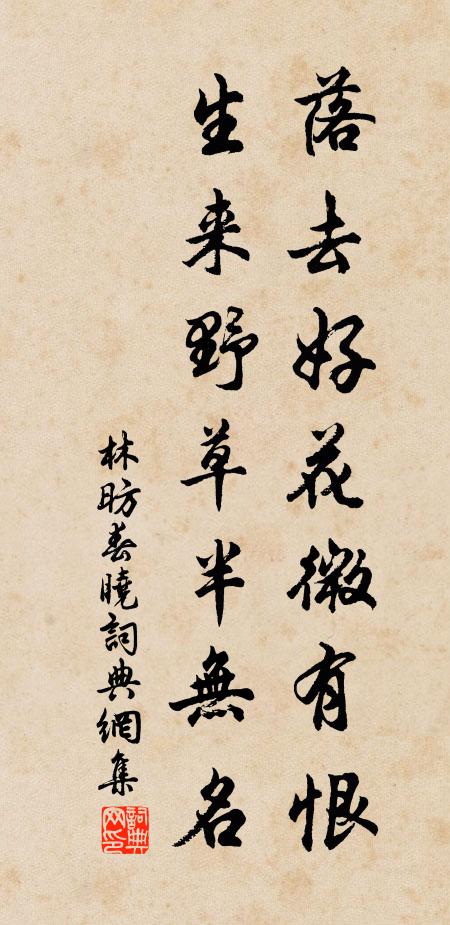 落去好花微有恨
生来野草半無名
林昉春曉詞典網集
詞典网印